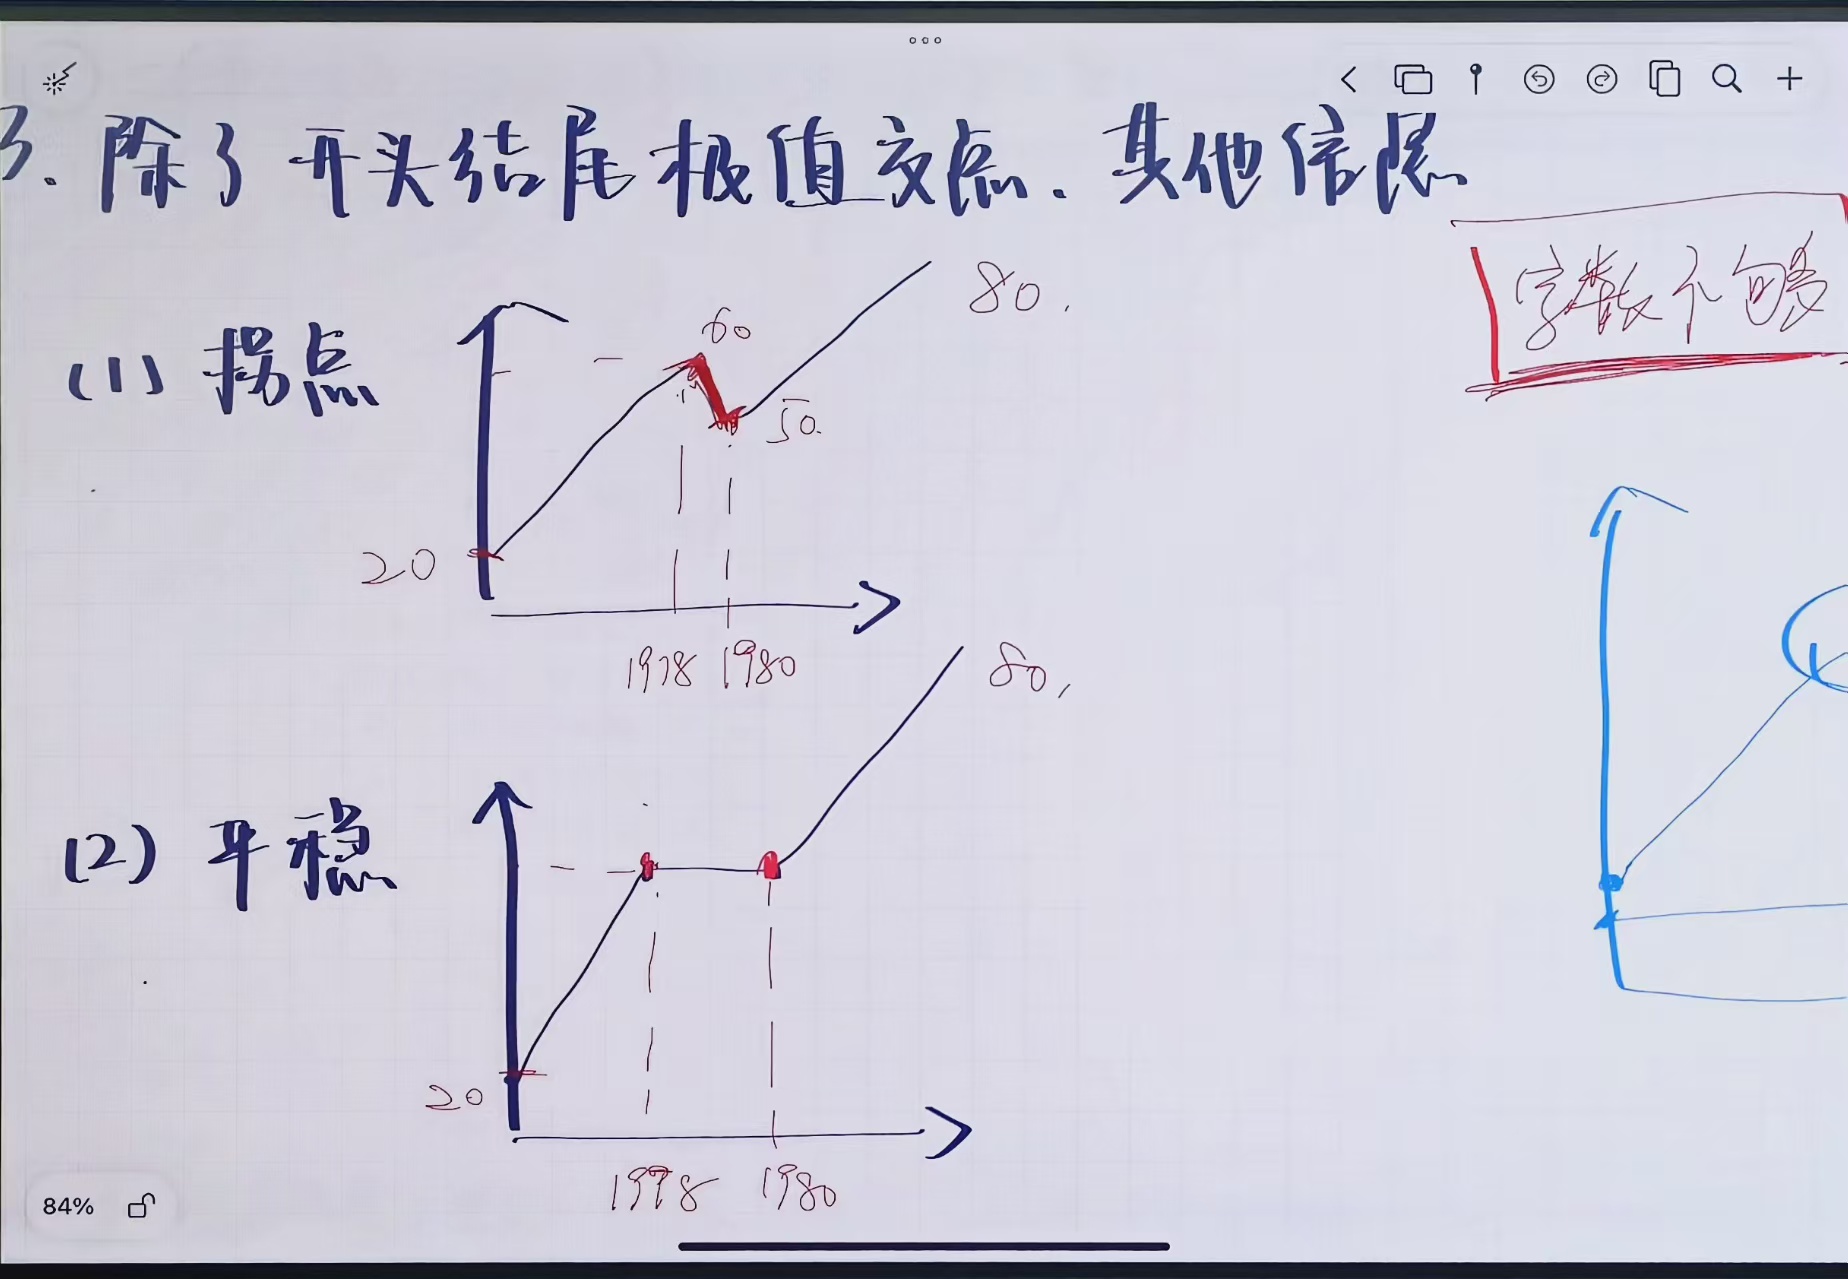 3. 除了开头结尾极值交点、其他信息
字数不够
(1) 拐点
80.
60
50.
20
1978 1980
80,
(2) 平稳
20
1978 1980
84%